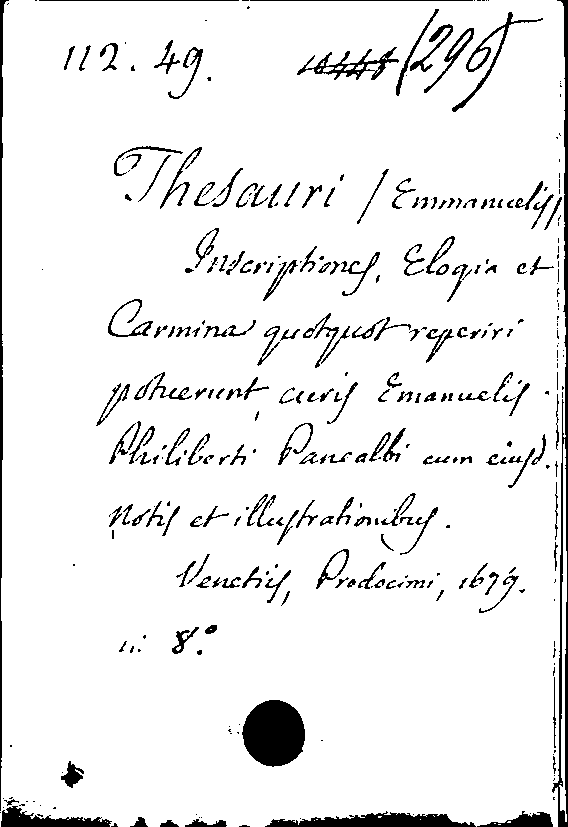 112. 49. (296)
Thesauri /Emmanuelis/
Inscriptiones, Elogia et
Carmina quotquot reperiri
potuerunt, curis Emanuelis
Philiberti Panealbi cum eiusd.
notis et illustrationibus.
Venetiis, Prodocimi, 1679.
in 8.°